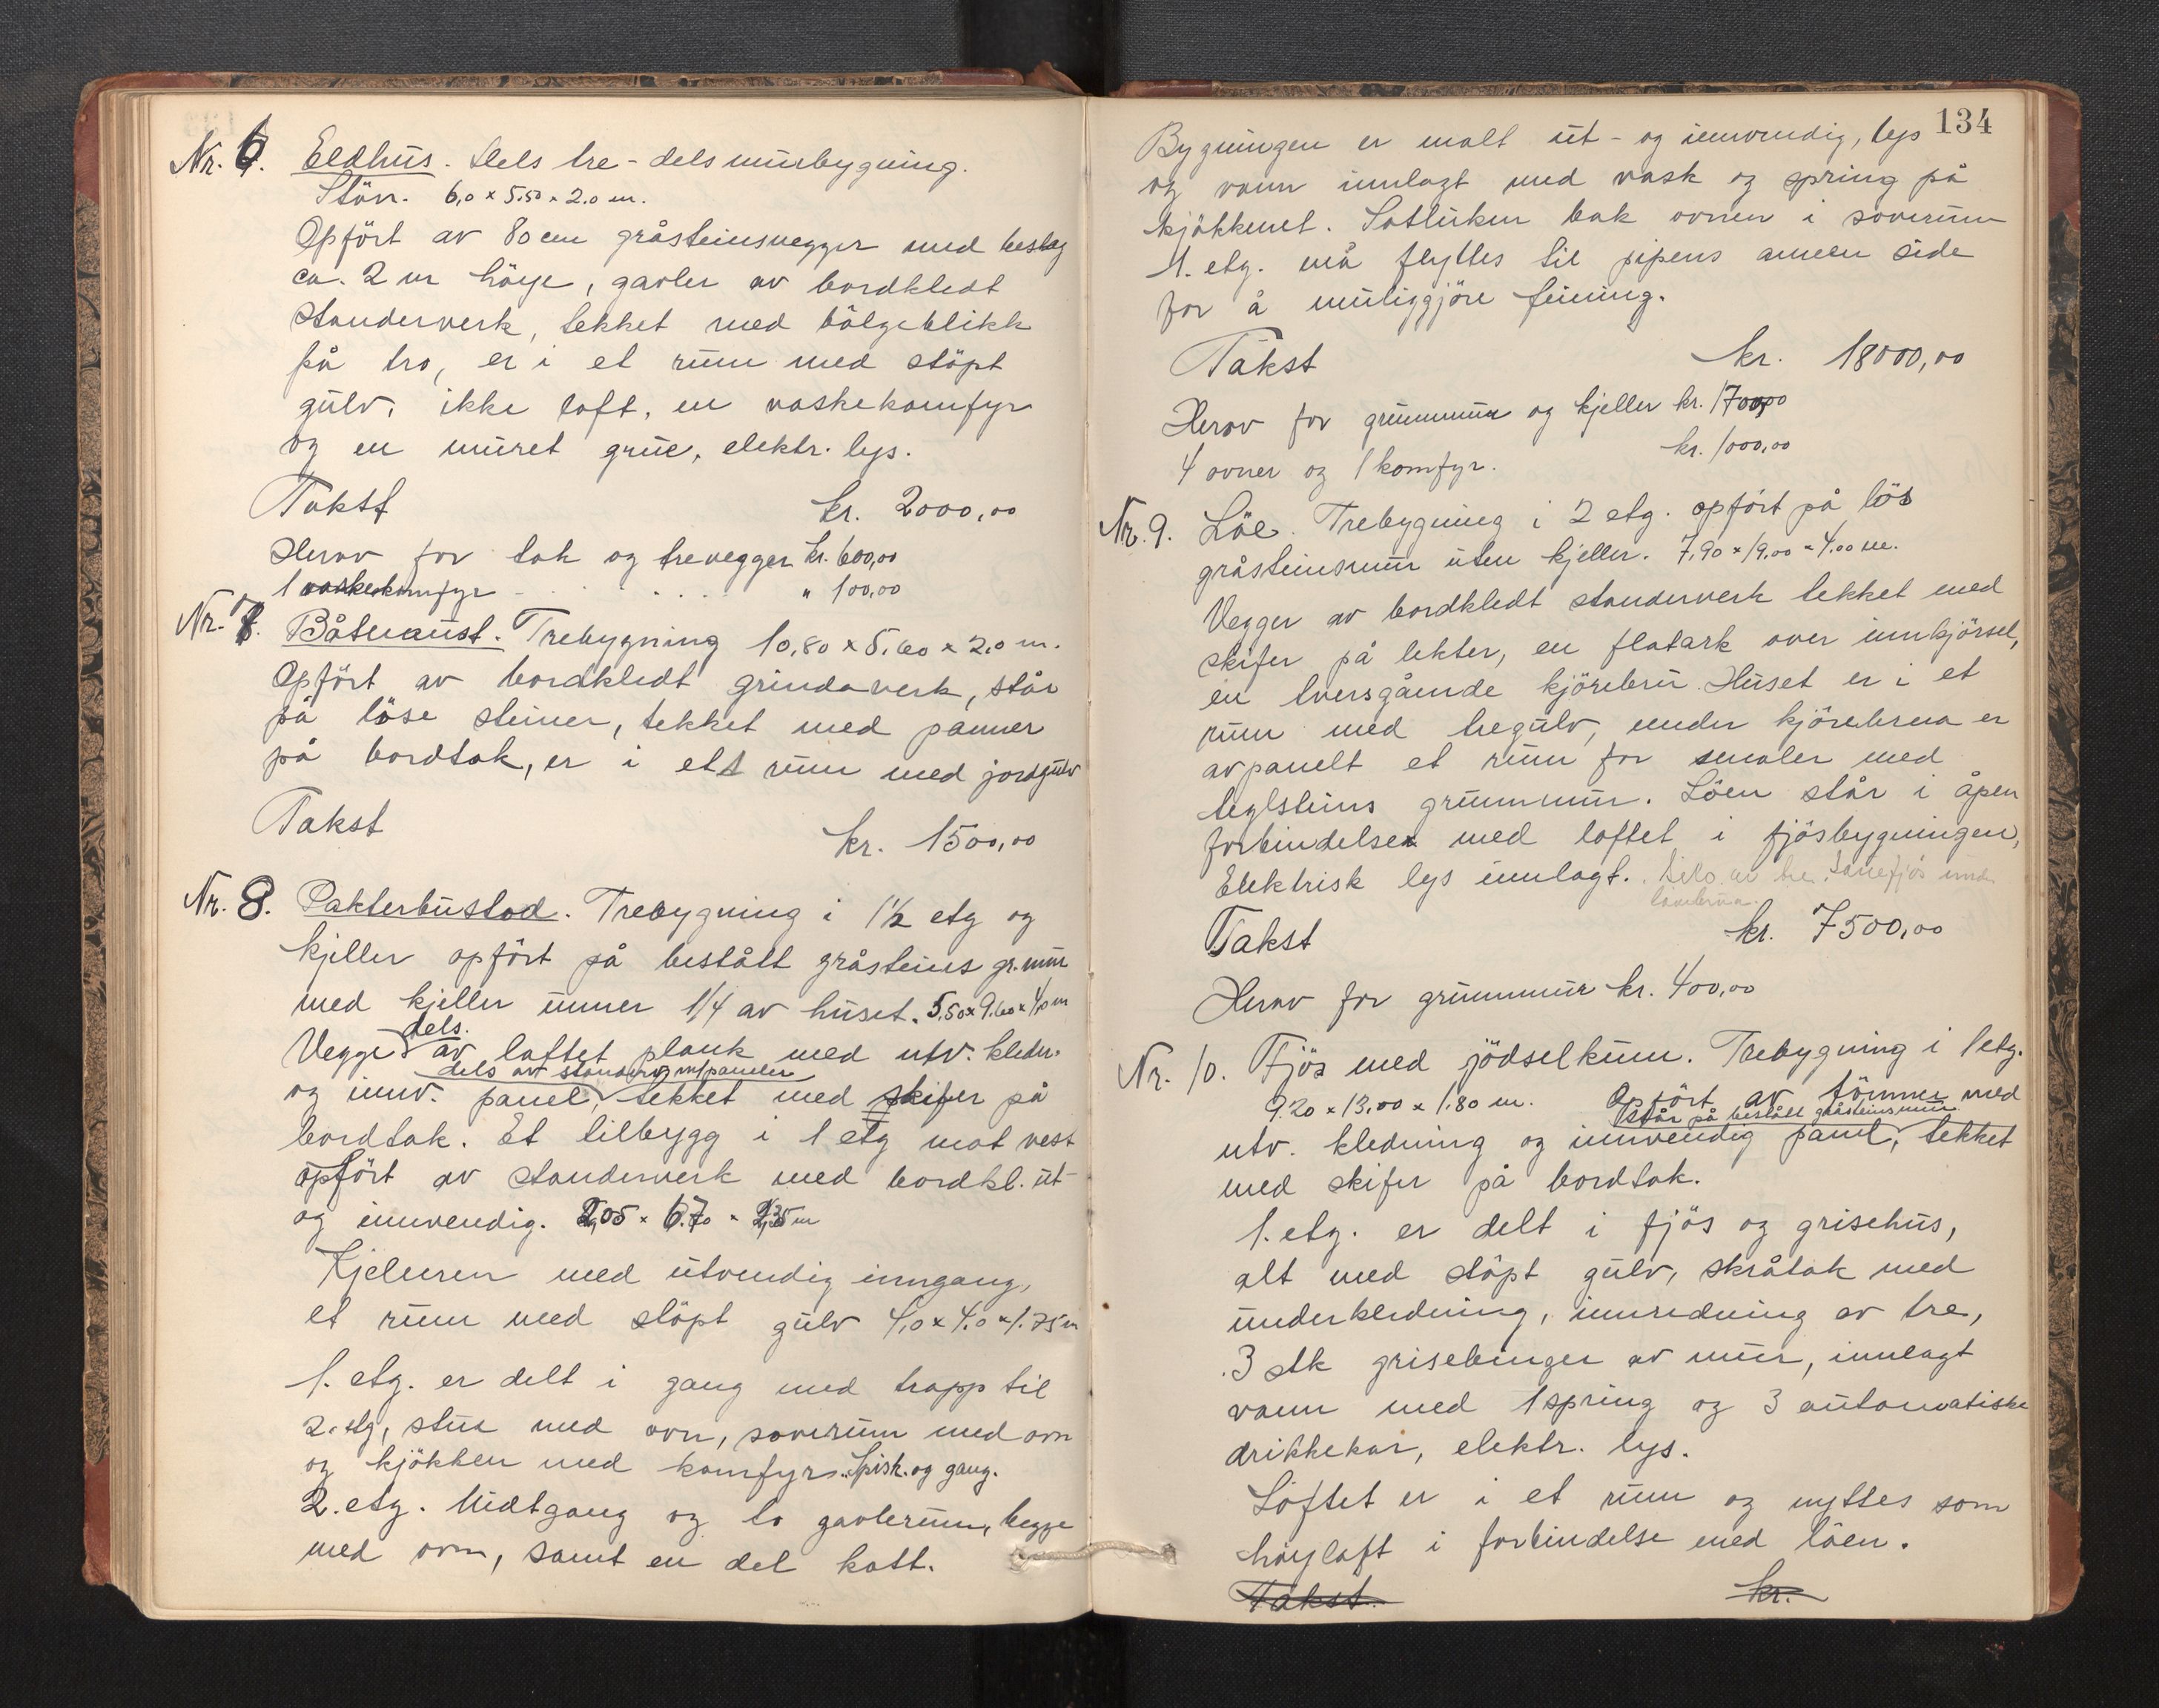 Nr. 6. Eldhus. Dels tre-dels murbygning.
Störr. 6,0 x 5.50 x 2.0 m.
Opfört av 80 cm gråsteinsvegger med beslag
ca. 2 m höye, gavler av bordkledt
standerverk, tekket med bölgeblikk
på tro, er i et rum med stöpt
gulv, ikke loft, en vaskekomfyr
og en muret grue, elektr. lys.
Takst kr. 2000,00
Herav for tak og trevegger kr. 600,00
1 vaskekomfyr - . . . . . . " 100,00
Nr. 7. Båtnaust. Trebygning 10,80 x 5,60 x 2,0 m.
Opfört av bordkledt grindaverk, står
på löse steiner, tekket med panner
på bordtak, er i ett rum med jordgulv
Takst kr. 1500,00
Nr. 8. Pakterbustad. Trebygning i 1½ etg og
kjeller opfört på bestått gråsteins gr.mur
med kjeller unner 1/4 av huset. 5,50 x 9,60 x 4,0 m
dels.
Vegger av laftet plank med utv. kledn.
dels av standerv. m/panelen
og innv. panel, tekket med skifer på
bordtak. Et tilbygg i 1 etg mot vest
opfört av standerverk med bordkl. ut-
og innvendig. 2,05 x 6.70 x 2,35 m
Kjelleren med utvendig inngang,
et rum med stöpt gulv 4,0 x 4,0 x 1.75 m
1. etg. er delt i gang med trapp til
2. etg, stue med ovn, soverum med ovn
og kjökken med komfyr. Spisk. og gang.
2. etg. Midtgang og to gavlerum, begge
med ovn, samt en del kott.
134
Bygningen er malt ut- og innvendig, lys
og vann innlagt med vask og spring på
kjökkenet. Sotluken bak ovnen i soverum
1. etg. må flyttes til pipens annen side
for å muliggjöre feining.
Takst kr. 18000,00
Herav for grunnmur og kjeller kr. 1700,00
4 ovner og 1 komfyr. kr. 1000,00
Nr. 9. Löe. Trebygning i 2 etg. opfört på lös
gråsteinsmur uten kjeller. 7,90 x 19,00 x 4,00 m.
Vegger av bordkledt standerverk tekket med
skifer på lekter, en flatark over innkjörsel,
en tversgående kjörebru. Huset er i et
rum med tregulv, under kjörebrua er
avpanelt et rum for smaler med
teglsteins grunnmur. Löen står i åpen
forbindelse med loftet i fjösbygningen,
Elektrisk lys innlagt. Silo av tre. Sauefjös und.
låvebrua.
Takst kr. 7500,00
Herav for grunnmur kr. 400,00
Nr. 10. Fjös med gjödselkum. Trebygning i 1 etg.
9.20 x 13,00 x 1.80 m. Opfört av tömmer med
står på bestått gråsteinsmur
utv. kledning og innvendig panel, tekket
med skifer på bordtak.
1. etg. er delt i fjös og grisehus,
alt med stöpt gulv, skråtak med
underkledning, innredning av tre,
3 stk grisebinger av mur, innlagt
vann med 1 spring og 3 automatiske
drikkekar, elektr. lys.
Loftet er i et rum og nyttes som
höyloft i forbindelse med löen.
Takst kr.